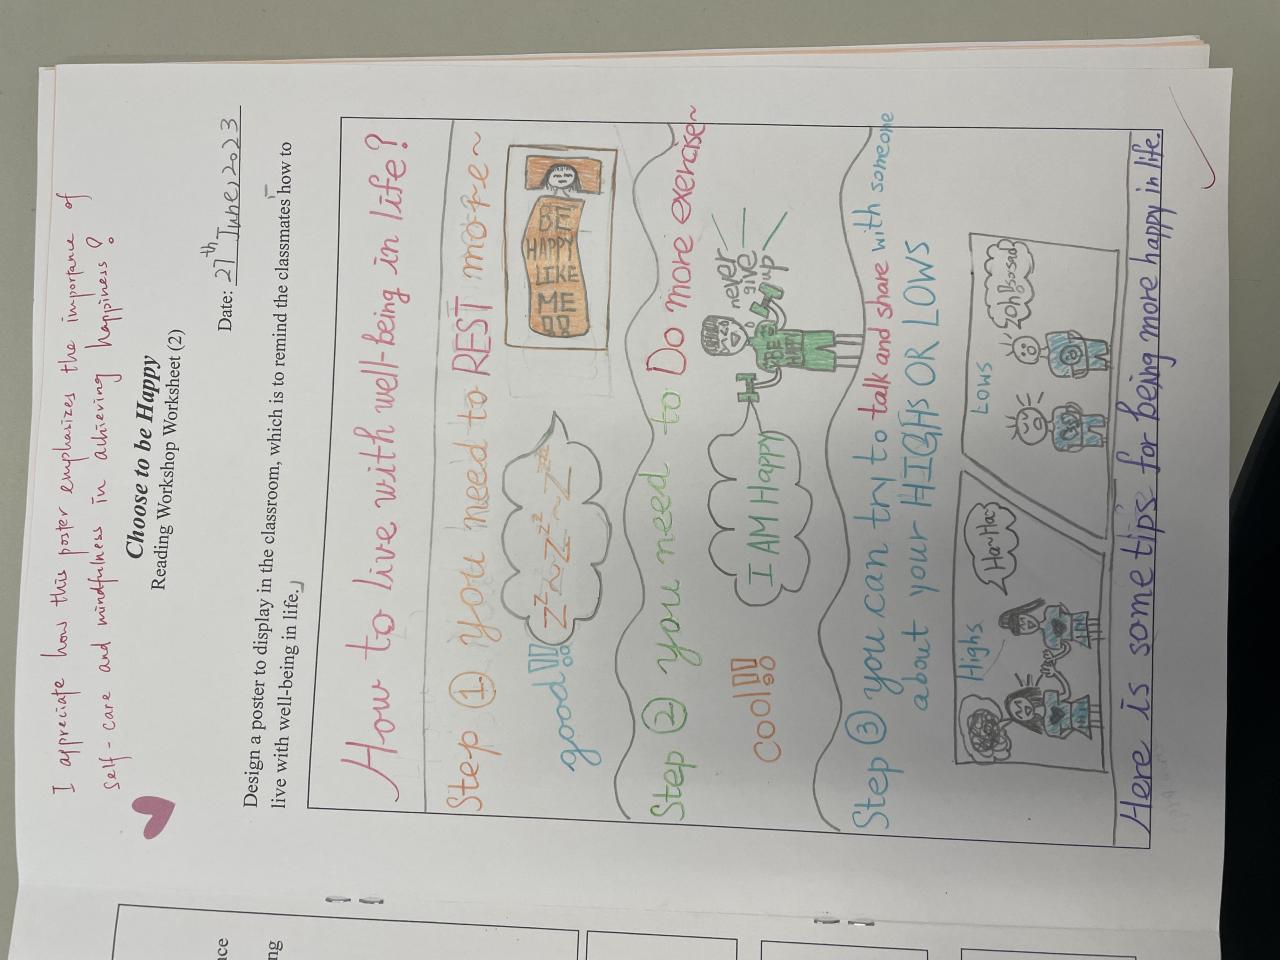 I appreciate how this poster emphasizes the importance of
self-care and mindfulness in achieving happiness!
Choose to be Happy
Reading Workshop Worksheet (2)
Date: 27th June, 2023
Design a poster to display in the classroom, which is to remind the classmates 「how to
live with well-being in life.」
How to live with well-being in life?
Step ① you need to REST more~
good!!!
Zz~Zzzz~Zzz
BE
HAPPY
LIKE
ME
!!
Step ② you need to Do more exercise~
cool!!!
I AM Happy
never
give
up
BE
HAPPY
Step ③ you can try to talk and share with someone
about your HIGHS OR LOWS
Highs
Ha~Ha~
Lows
Here is some tips for being more happy in life.
nce
ng